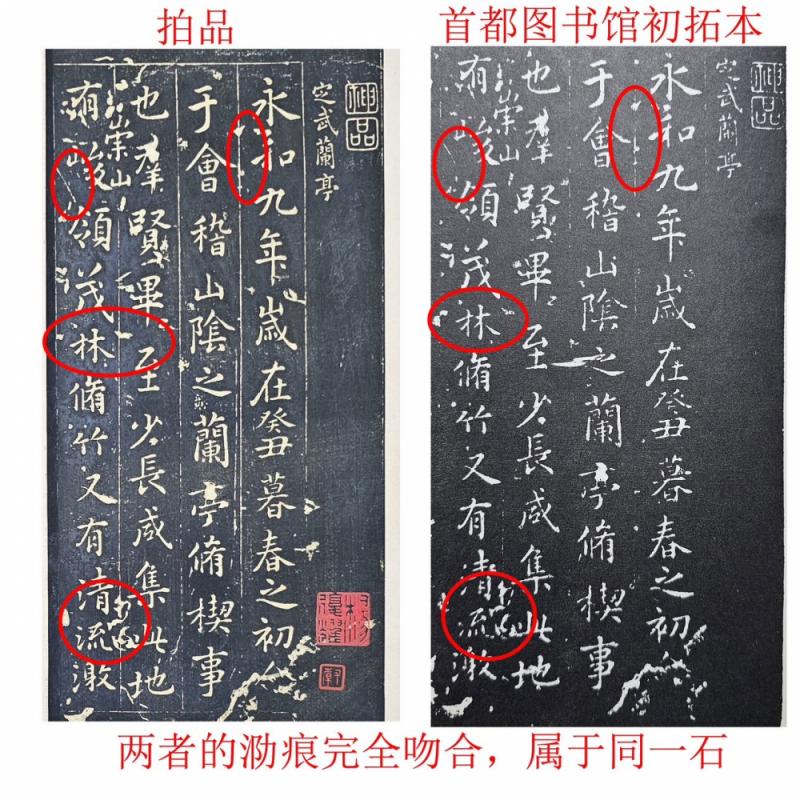 拍品
神品
定武蘭亭
永和九年歲在癸丑暮春之初
于會稽山陰之蘭亭脩稧事
也羣賢畢至少長咸集此地
有崇山峻領茂林脩竹又有清流激
首都图书馆初拓本
神品
定武蘭亭
永和九年歲在癸丑暮春之初
于會稽山陰之蘭亭脩稧事
也羣賢畢至少長咸集此地
有崇山峻領茂林脩竹又有清流激
两者的泐痕完全吻合，属于同一石